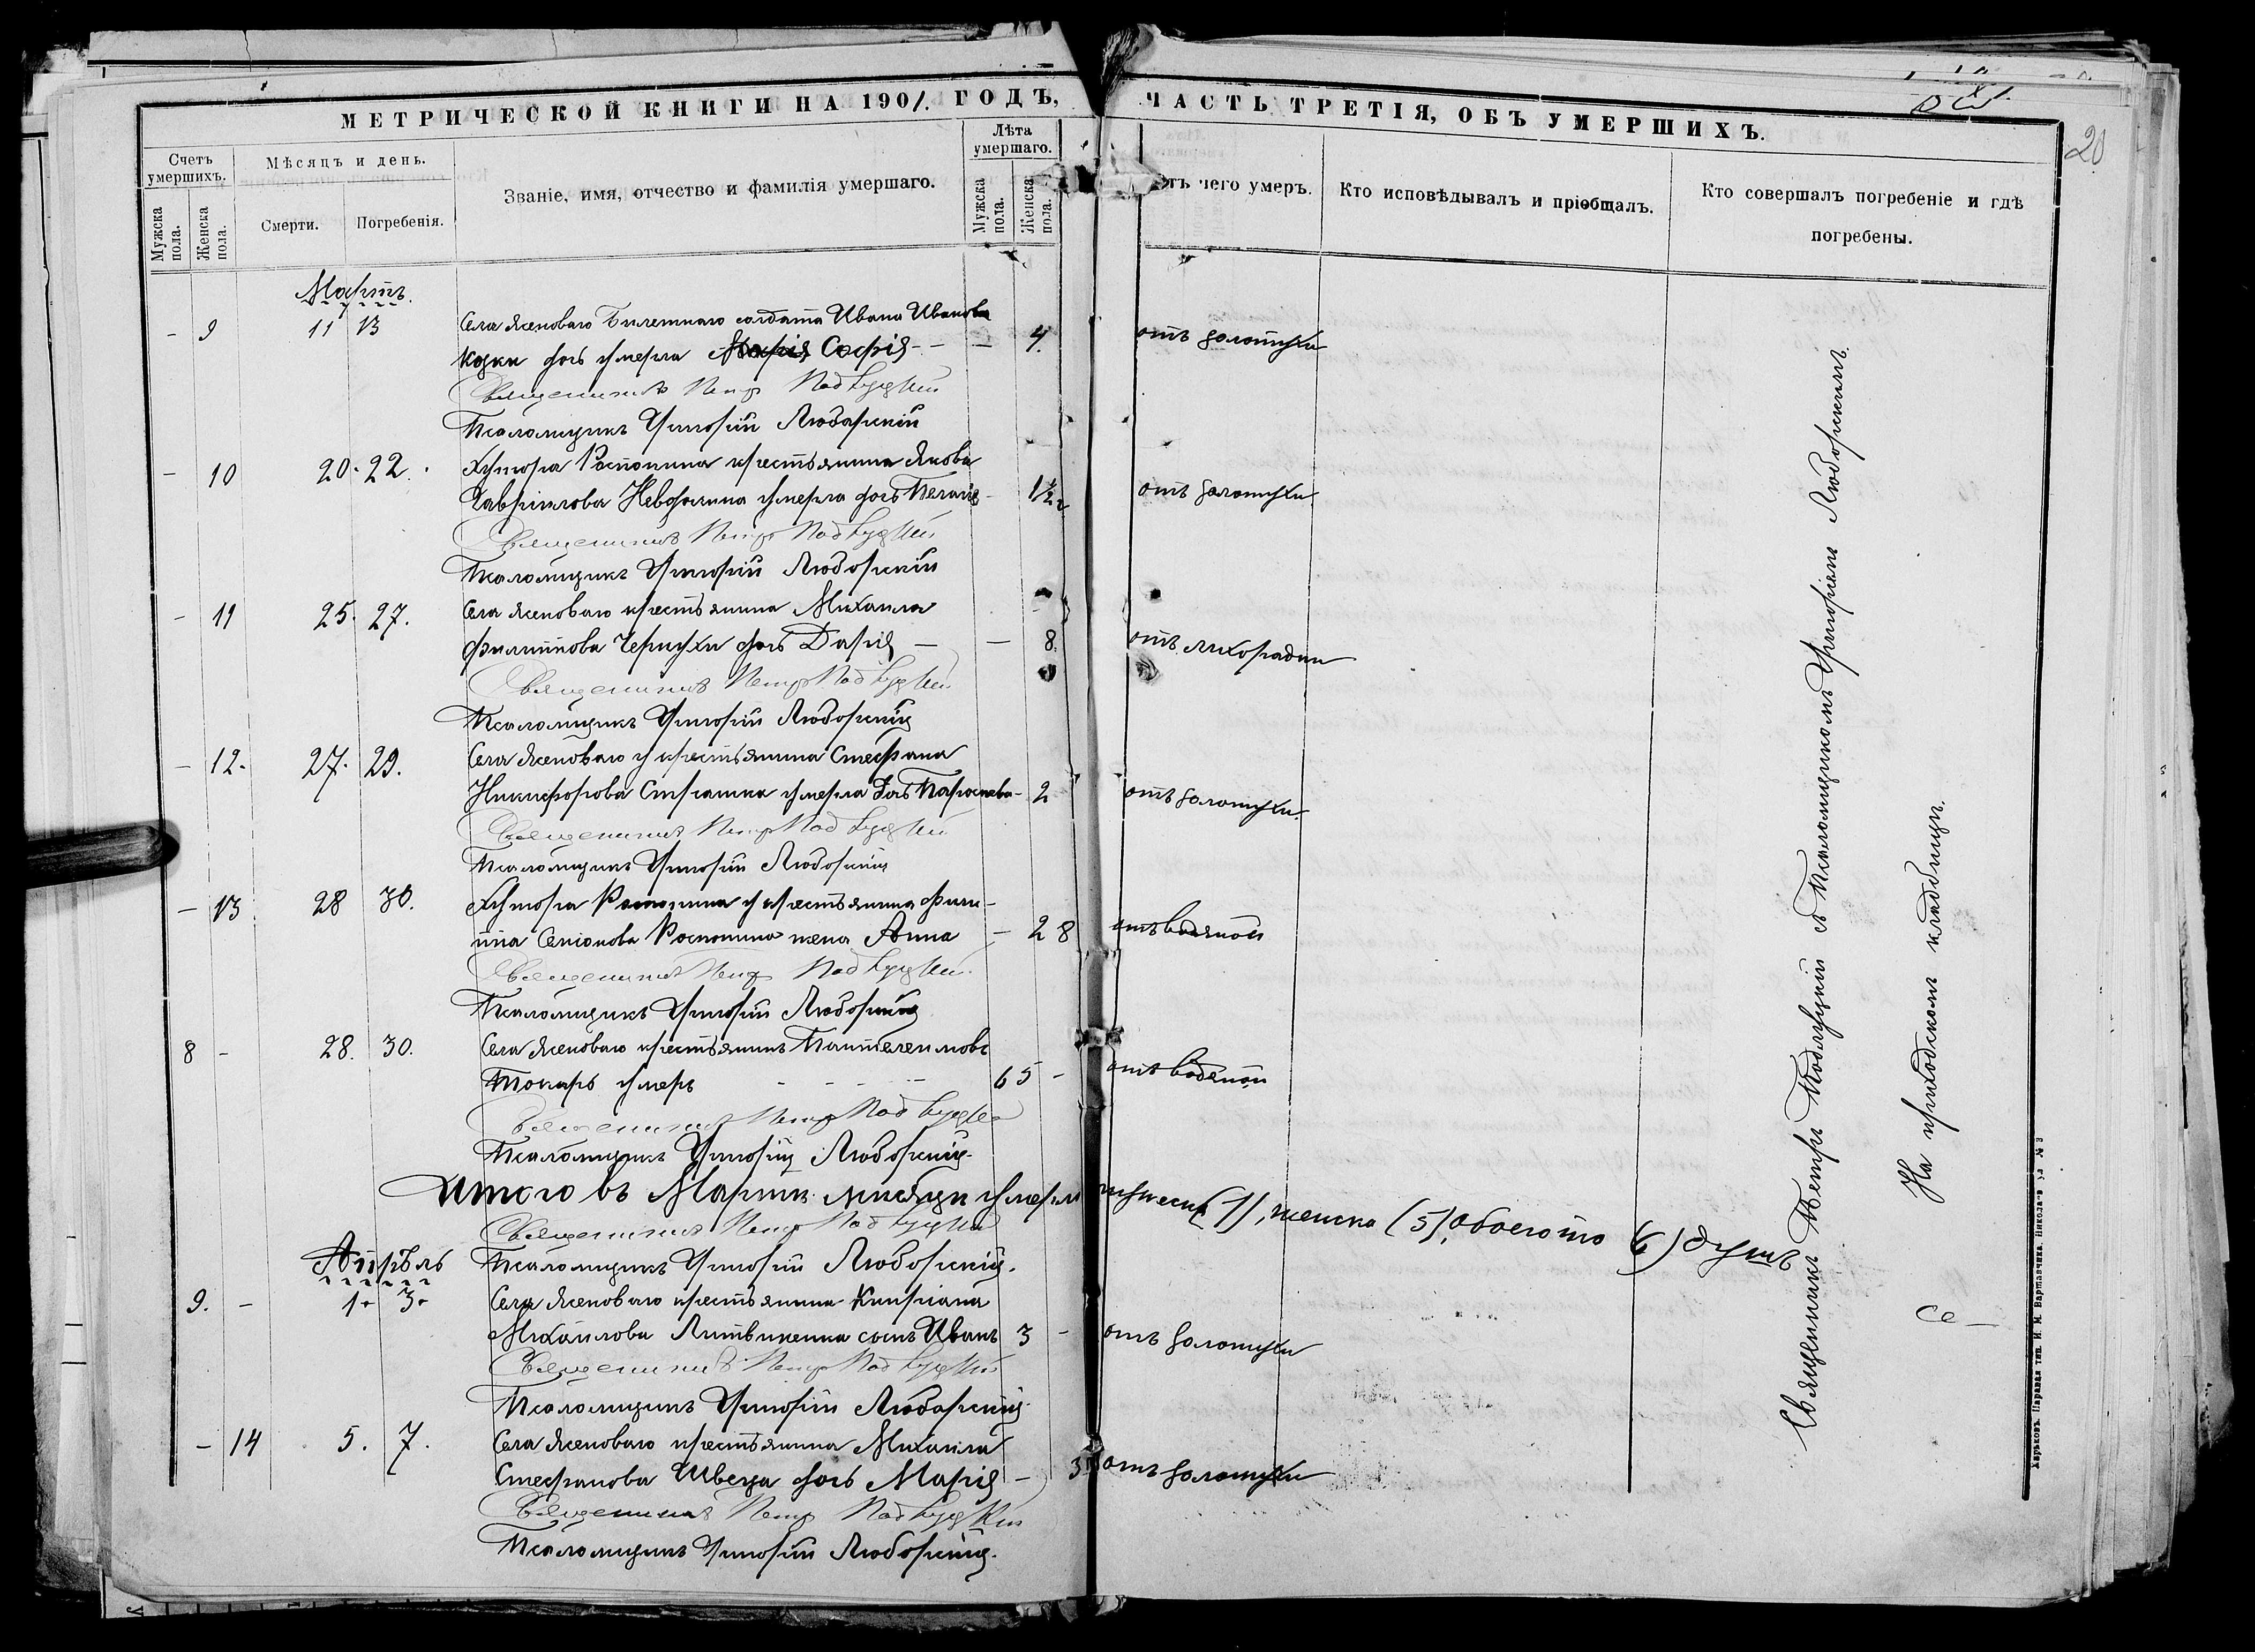 МЕТРИЧЕСКОЙ КНИГИ НА 1901. ГОДЪ,
Счетъ умершихъ.
Мѣсяцъ и день.
Званіе, имя, отчество и фамилія умершаго.
Лѣта умершаго.
Мужска пола.
Женска пола.
Смерти.
Погребенія.
Мужска пола.
Женска пола.
ЧАСТЬ ТРЕТІЯ, ОБЪ УМЕРШИХЪ.
20
тъ чего умеръ.
Кто исповѣдывалъ и пріобщалъ.
Кто совершалъ погребеніе и гдѣ
погребены.
Мартъ.
- 9 11 13 Села Ясеноваго Билетнаго солдата Ивана Иванова
дочь умерла Марія София - - - 4. отъ золотухи
Священникъ Петр Подлуцкий
Псаломщикъ Григорій Любарскій
- 10 20. 22. Хутора Роспопина крестьянина Якова
Гавриилова умерла дочь - 1½ отъ золотухи
Священникъ Петр Подлуцкий
Псаломщикъ Григорій Любарскій
- 11 25. 27. Села Ясеноваго крестьянина Михаила
Филиппова Чернухи дочь Дарія - - 8. отъ лихорадки
Священникъ Петр Подлуцкий
Псаломщикъ Григорій Любарскій
- 12. 27. 29. Села Ясеноваго у крестьянина Стефана
Никифорова умерла дочь Параскева - 2 отъ золотухи.
Священникъ Петр Подлуцкий
Псаломщикъ Григорій Любарскій
- 13 28 30. Хутора Роспопина у крестьянина Фили-
ппа Роспопина жена Анна - 28 отъ водяной
Священникъ Петр Подлуцкий
Псаломщикъ Григорій Любарскій
8 - 28. 30. Села Ясеноваго крестьянинъ Пантелеимонъ
Токарь умеръ - - - - 65 - отъ водяной
Священникъ Петр Подлуцкий
Псаломщикъ Григорій Любарскій.
Итого въ Мартѣ мѣсяцѣ умерло мужеска (1), женска (5), обоего (6) душъ
Священникъ Петр Подлуцкий
Апрѣль
Псаломщикъ Григорій Любарскій.
9. - 1. 3. Села Ясеноваго крестьянина Кипріана
Михаилова Литвиненка сынъ Иванъ 3 - отъ золотухи
Священникъ Петр Подлуцкий
Псаломщикъ Григорій Любарскій.
- 14 5. 7. Села Ясеноваго крестьянина Михаила
Стефанова Швеца дочь Марія - 3 отъ золотухи
Священникъ Петр Подлуцкий
Псаломщикъ Григорій Любарскій.
Священникъ Петръ Подлуцкій съ Псаломщикомъ Григоріемъ Любарскимъ.
На приходскомъ кладбищѣ.
Харьковъ. Паровая тип. И. М. Варшавчика. Николаев ул № 3